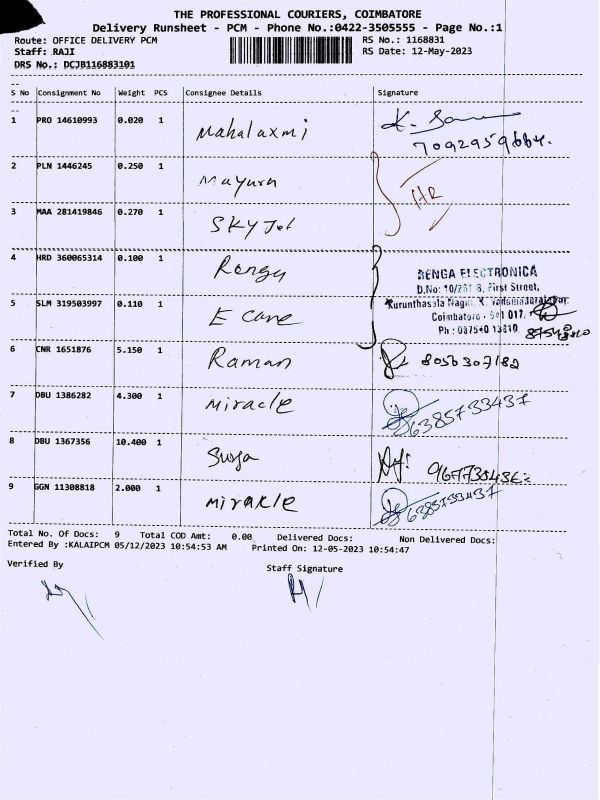 THE PROFESSIONAL COURIERS, COIMBATORE
Delivery Runsheet - PCM - Phone No.:0422-3505555 - Page No.:1
Route: OFFICE DELIVERY PCM
RS No.: 1168831
Staff: RAJI
RS Date: 12-May-2023
DRS No.: DCJB116883101
S No Consignment No Weight PCS Consignee Details Signature
1 PRO 14610993 0.020 1 Mahalaxmi
7092959664.
2 PLN 1446245 0.250 1 Mayura
HR
3 MAA 281419846 0.270 1 SKYJet
4 HRD 360065314 0.100 1 Renga
RENGA ELECTRONICA
First Street,
Coimbatore
5 SLM 319503997 0.110 1 E care
6 CNR 1651876 5.150 1 Raman
8056307182
7 DBU 1386282 4.300 1 Miracle
6385733437
8 DBU 1367356 10.400 1 Surya
9 GGN 11308818 2.000 1 Miracle
6385733437
Total No. Of Docs: 9 Total COD Amt: 0.00 Delivered Docs: Non Delivered Docs:
Entered By :KALAIPCM 05/12/2023 10:54:53 AM Printed On: 12-05-2023 10:54:47
Verified By
Staff Signature